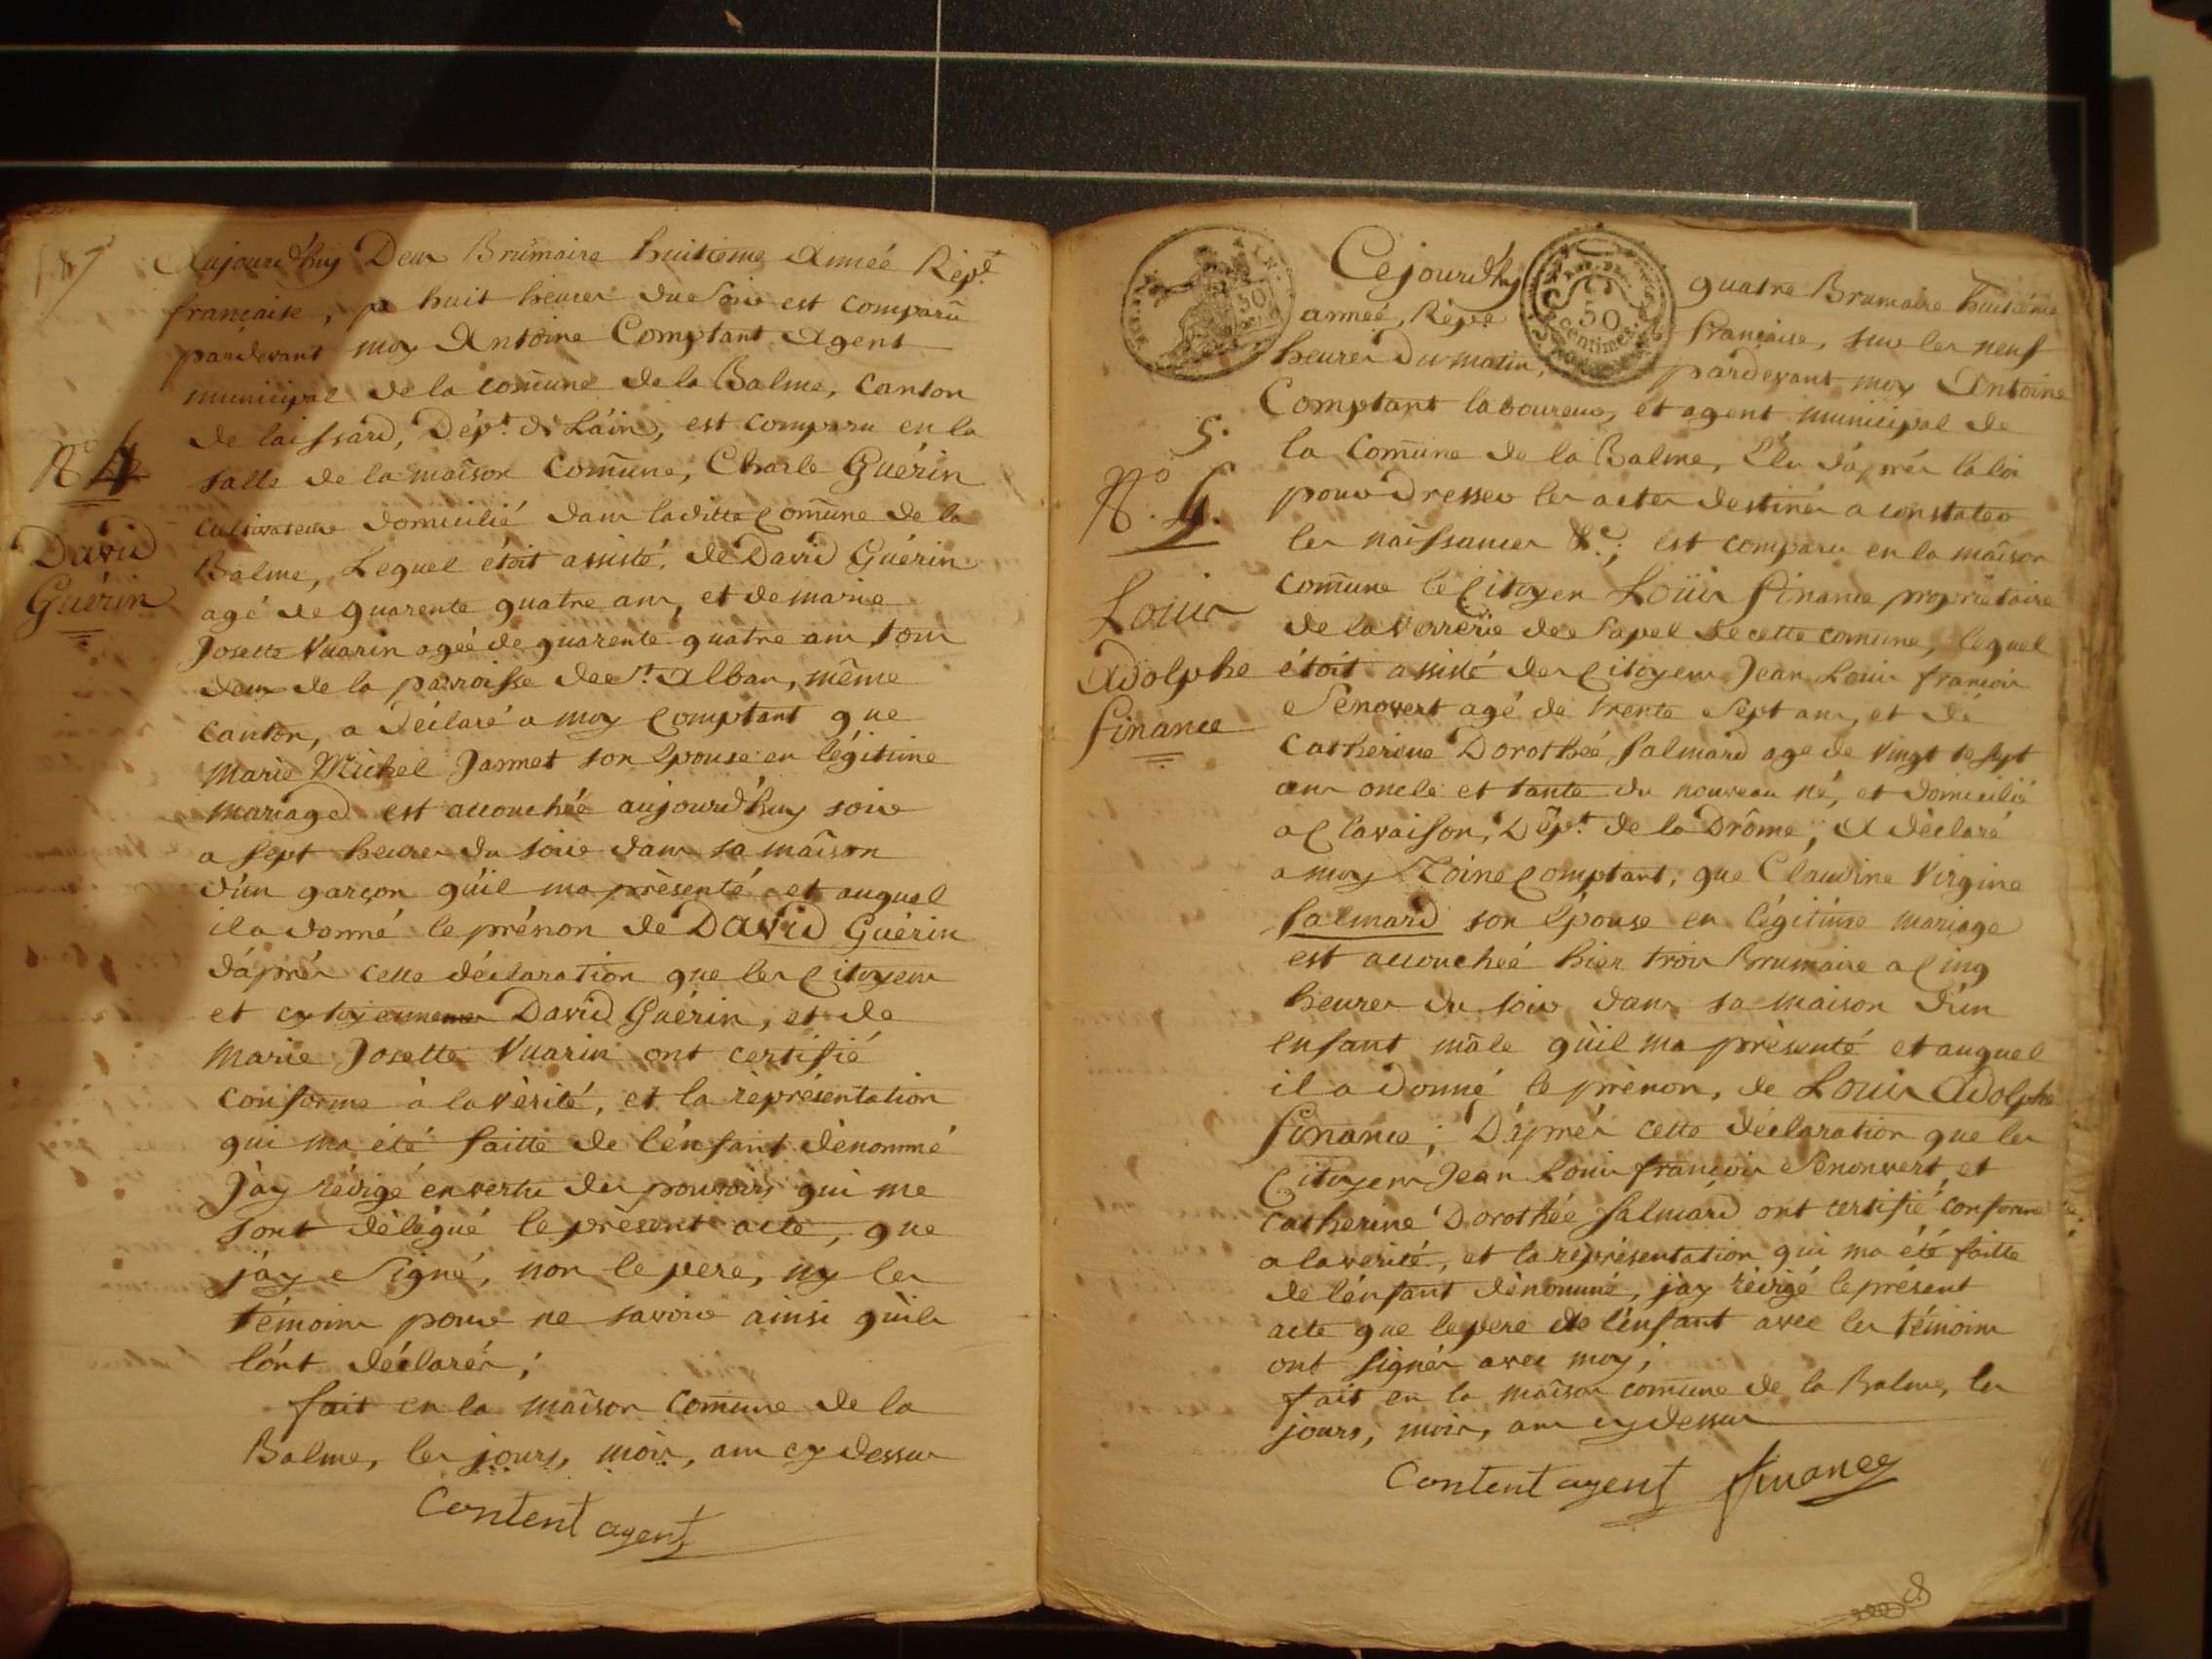 Aujourd'huy Deux Brumaire huitieme Année Rép.e
française, a huit heures du Soir est comparu
pardevant moy Antoine Comptant Agent
municipal de la comune de la Balme, Canton
de laissard, Dép.t de Láin, est comparu en la
salle de la maison Comune, Charle Guérin
cultivateur domicilié dans laditte Comune de la
Balme, Lequel étoit assisté, de David Guérin
agé de quarente quatre ans, et de marie
Josette Vuarin ageé de quarente quatre ans tous
deux de la parroisse de St. Alban, même
Canton, a déclaré a moy Comptant que
Marie Michel Jannet son Epouse en légitime
mariage est accouchée aujourd'huy soir
a sept heures du soir dans sa maison
d'un garçon qu'il ma présenté et auquel
il a donné le prénon de David Guérin
d'áprés cette déclaration que les Citoyens
et cytoyennemes David Guérin, et de
Marie Josette Vuarin ont certifié
conforme à la vérité, et la représentation
qui ma été faitte de l'énfant dénommé
J'ay rédigé en vertu des pouvoirs qui me
sont délégué le présent acte, que
j'ay Signé, non le pere, ny les
témoins pour ne savoir ainsi qu'ils
lónt déclarés;
fait en la maison Comune de la
Balme, les jours, mois, ans cy dessus
Content agent
N.o 4
David
Guérin
Cejourd'huy quatre Brumaire huitiéme
année, Répe française, sur les neuf
heures du matin, pardevant moy Antoine
Comptant laboureur, et agent municipal de
la Comune de la Balme, Elu d'áprés la loi
pour dresser les actes destinés a constater
les naissances &c; est comparu en la maison
comune le Citoyen Loüis finance propriétaire
de la verrerie de Sapel de cette comune, lequel
étoit assisté des Citoyens Jean Louis françois
Senovert agé de trente Sept ans, et de
Catherine Dorothéé Salmard age de vingt te sept
ans oncle et tante du nouveau né, et domicilié
a Clavaison, Dépt. de la Drôme, A déclaré
a moy Toine Comptant, que Claudine Virgine
Salmard son Epouse en légitime mariage
est accouchéé hier trois Brumaire a Cinq
heures du soir dans sa maison d'ún
enfant mâle qu'il ma présenté et auquel
il a donné le prénon, de Louis Adolphe
finance; D'áprés cette déclaration que les
Citoyens Jean Louis françois Senonvert, et
Catherine Dorothée Salmard ont certifié conforme
a la verité, et la représentation qui ma été faitte
de l'énfant dénommé, j'ay rédigé le présent
acte que le pere de l'énfant avec les témoins
ont signés avec moy;
fait en la maison comune de la Balme, les
jours, mois, ans cy dessus
Content agent finance
5.
N.o
Louis
Adolphe
finance
50
50
centimes